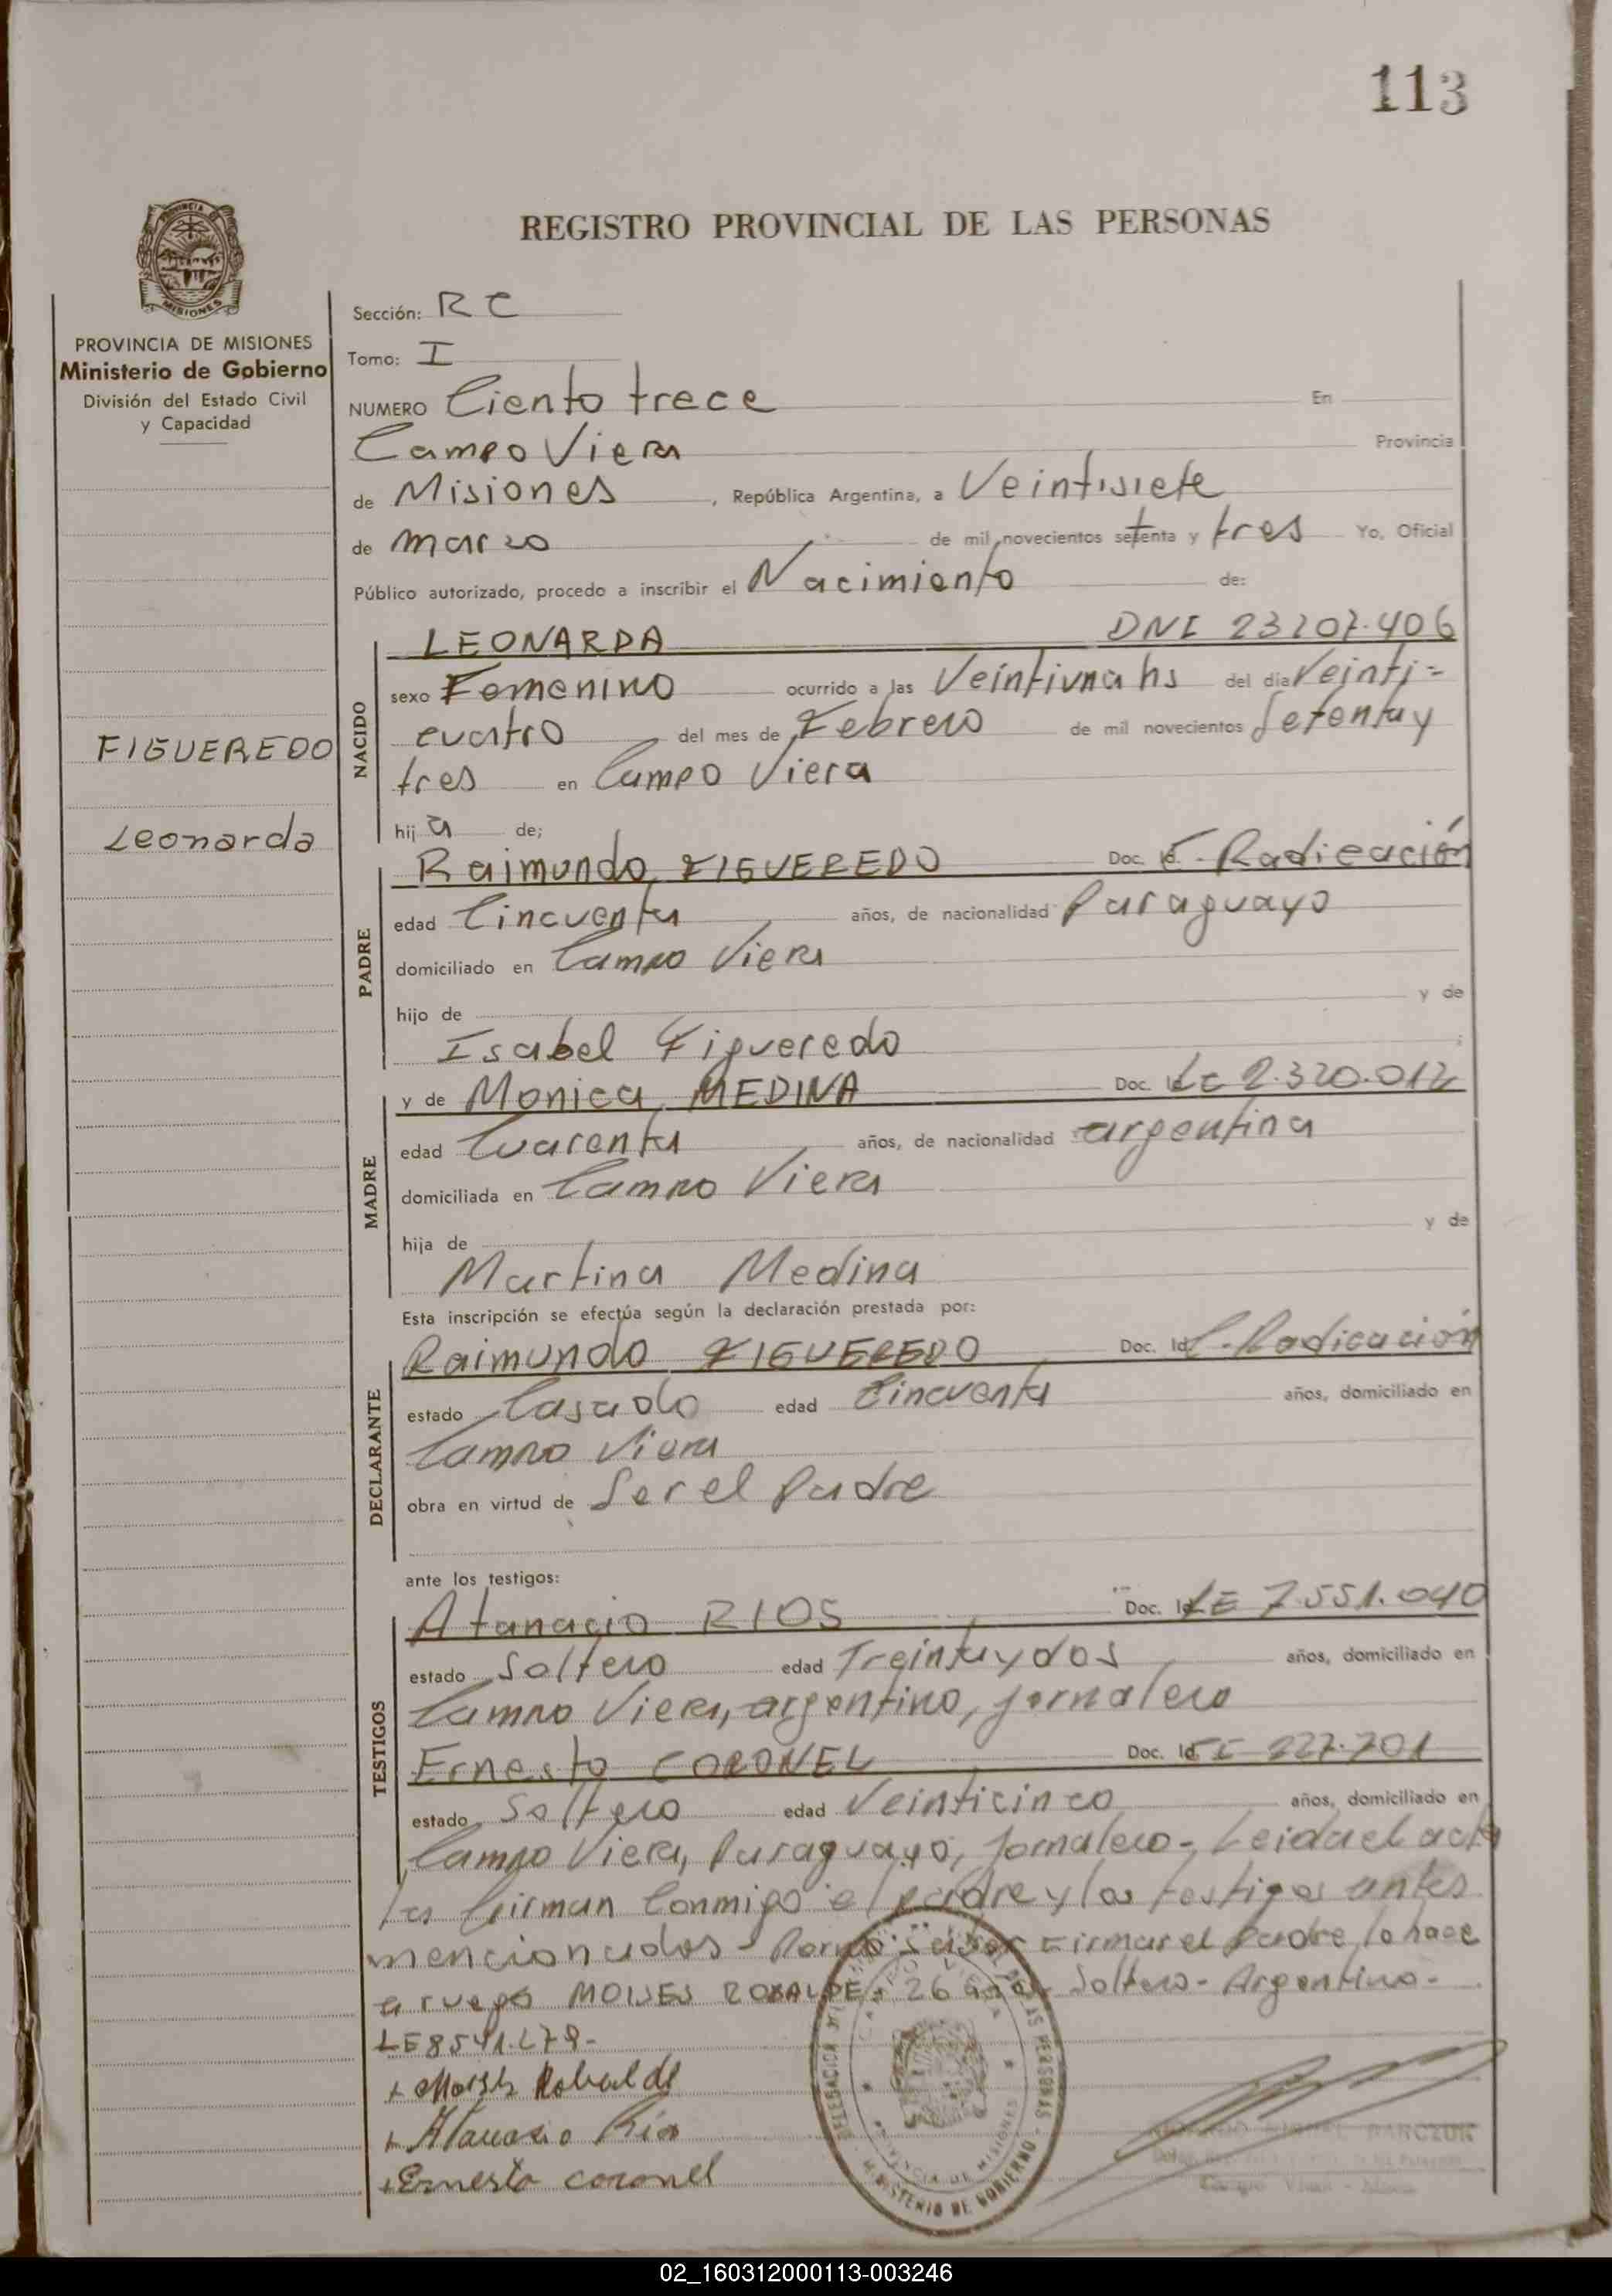 113
REGISTRO PROVINCIAL DE LAS PERSONAS
PROVINCIA DE MISIONES
Ministerio de Gobierno
División del Estado Civil
y Capacidad
FIGUEREDO
Leonarda
Sección: RC
Tomo: I
NUMERO Ciento trece En
Campo Viera Provincia
de Misiones, República Argentina, a Veintisiete
de marzo de mil novecientos setenta y tres Yo, Oficial
Público autorizado, procedo a inscribir el Nacimiento de:
NACIDO
LEONARDA DNI 23207.406
sexo Femenino ocurrido a las Veintiuna hs del día Veinti=
cuatro del mes de Febrero de mil novecientos Setenta y
tres en Campo Viera
hij a de;
PADRE
Raimundo FIGUEREDO Doc. Id. C-Radicación
edad Cincuenta años, de nacionalidad Paraguayo
domiciliado en Campo Viera
hijo de y de
Isabel Figueredo ;
MADRE
y de Monica MEDINA Doc. Id. LC 2.320.012
edad Cuarenta años, de nacionalidad argentina
domiciliada en Campo Viera
hija de y de
Martina Medina
Esta inscripción se efectúa según la declaración prestada por:
DECLARANTE
Raimundo FIGUEREDO Doc. Id. C-Radicación
estado Casado edad Cincuenta años, domiciliado en
Campo Viera
obra en virtud de Ser el Padre
ante los testigos:
TESTIGOS
Atanacio RIOS Doc. Id. LE 7.551.040
estado Soltero edad Treinta y dos años, domiciliado en
Campo Viera, argentino, jornalero
Ernesto CORONEL Doc. Id. 227.701
estado Soltero edad Veinticinco años, domiciliado en
Campo Viera, Paraguayo, Jornalero- Leida el acta
la firman Conmigo el padre y los testigos antes
mencionados- Por no saber Firmar el Padre, lo hace
a ruego MOISES ROBALDE- 26 años Soltero- Argentino-
LE8541.279-
+ Moisés Robalde
+ Atanacio Rios
+ Ernesto coronel
PROVINCIA DE MISIONES
MINISTERIO DE GOBIERNO
02_160312000113-003246